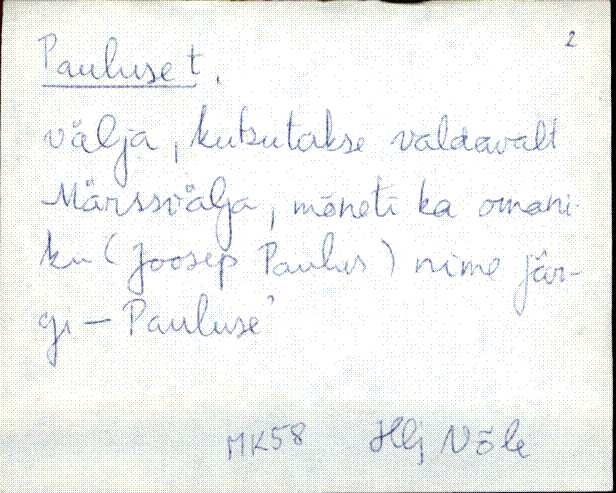 2
Pauluse t.
välja, kutsutakse valdavalt
Märssvälja, mõneti ka omani-
ku (Joosep Paulus) nime jär-
gi — Pauluse'
MK58 Hlj Nõle